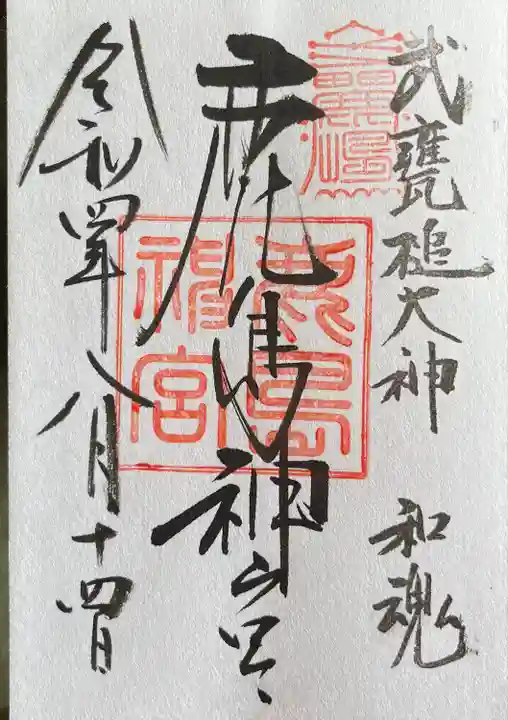 武甕槌大神 和魂
鹿島神宮
鹿島
神宮
令和四年八月十四日